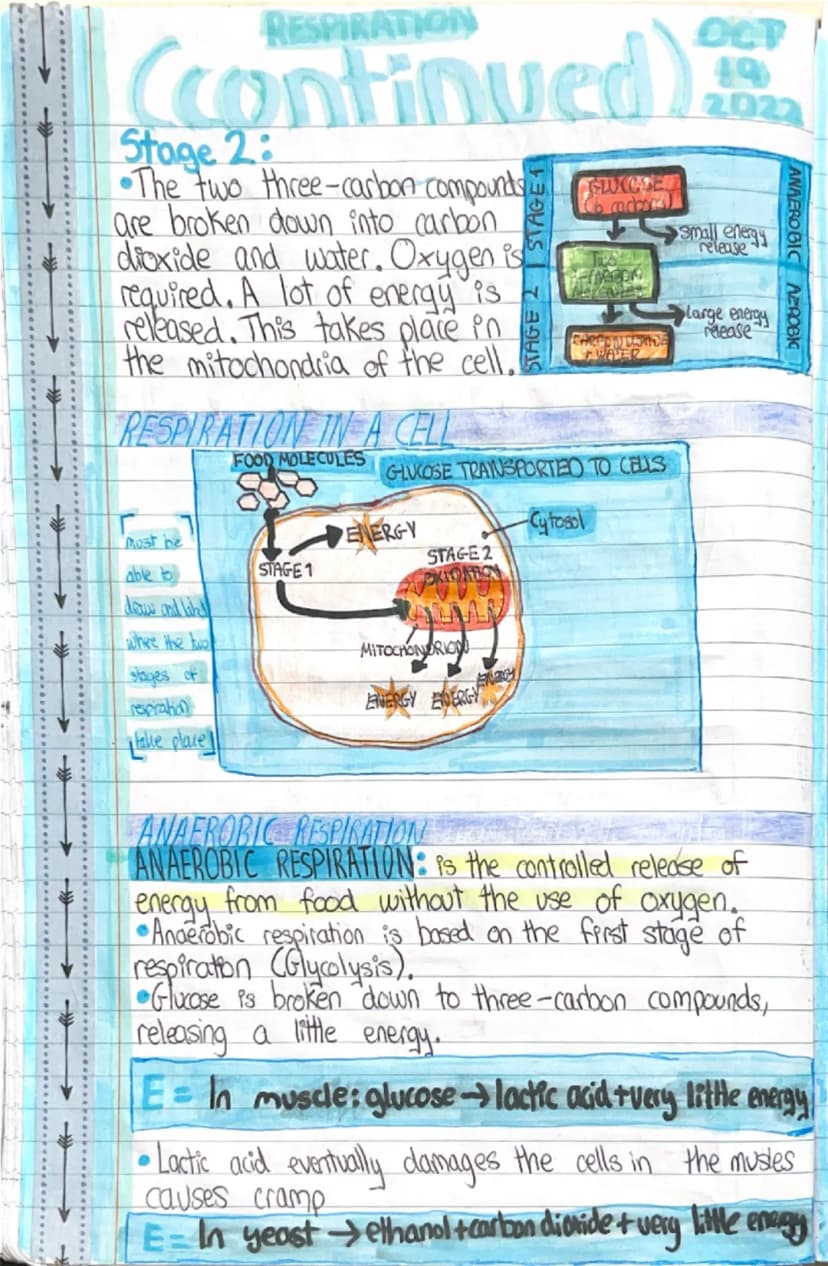 RESPIRATION
(continued)
OCT
19
2022
Stage 2:
•The two three-carbon compounds
are broken down into carbon
dioxide and water. Oxygen is
required. A lot of energy is
released. This takes place in
the mitochondria of the cell.
STAGE 1
STAGE 2
GLUCOSE
(6 carbon)
Small energy
release
TWO
3-CARBON
large energy
release
CARBON DIOXIDE
+ WATER
ANAEROBIC
AEROBIC
RESPIRATION IN A CELL
FOOD MOLECULES
GLUCOSE TRANSPORTED TO CELLS
ENERGY
Cytosol
STAGE 1
STAGE 2
OXIDATION
MITOCHONDRION
ENERGY
ENERGY
ENERGY
must be
able to
draw and label
where the two
stages of
respiration
take place
ANAEROBIC RESPIRATION
ANAEROBIC RESPIRATION: is the controlled release of
energy from food without the use of oxygen.
•Anaerobic respiration is based on the first stage of
respiration (Glycolysis).
•Glucose is broken down to three-carbon compounds,
releasing a little energy.
E = In muscle: glucose → lactic acid + very little energy
•Lactic acid eventually damages the cells in the musles
causes cramp
E = In yeast → ethanol + carbon dioxide + very little energy